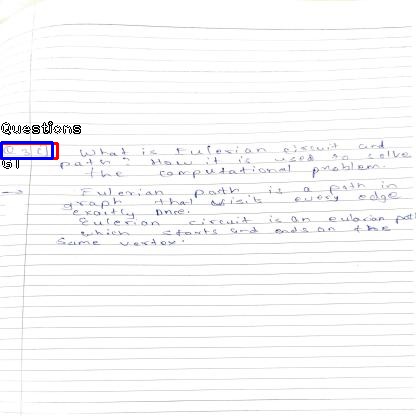 Questions
Q 3 C]
GT
What is Eulerian circuit and
path? How it is used to solve
the computational problem.
→ Eulerian path is a path in
graph that visits every edge
exactly once.
Eulerian circuit is an eularian path
which starts and ends on the
same vertex.